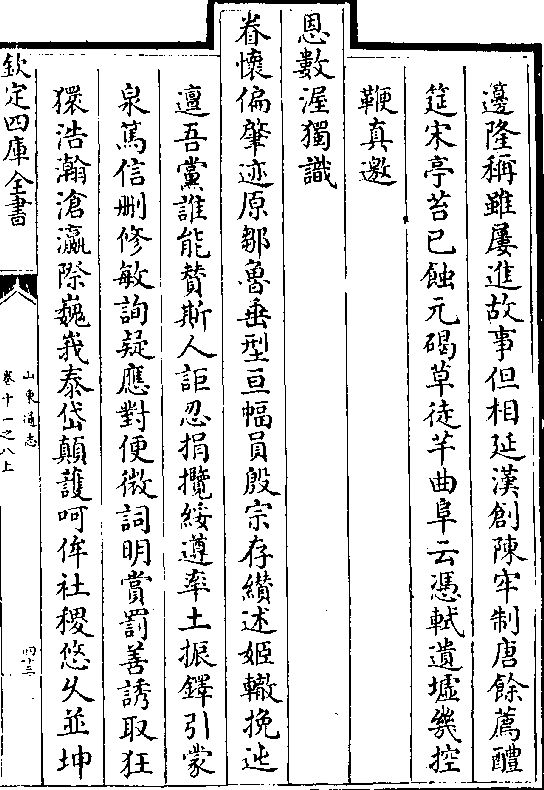 邊隆稱雖屢進故事但相延漢創陳牢制唐餘薦醴
筵宋亭苔已蝕元碣草徒芊曲阜云憑軾遺墟幾控
鞭真邀
恩數渥獨識
眷懷偏肇迹原鄒魯垂型亘幅員殷宗存纘述姬轍挽迍
邅吾黨誰能贊斯人詎忍捐攬綏遵率土振鐸引蒙
泉篤信刪修敏詢疑應對便微詞明賞罰善誘取狂
獧浩瀚滄瀛際巍峩泰岱顛䕶呵侔社稷悠久並坤
欽定四庫全書
山東通志
卷十一之八上
四十三